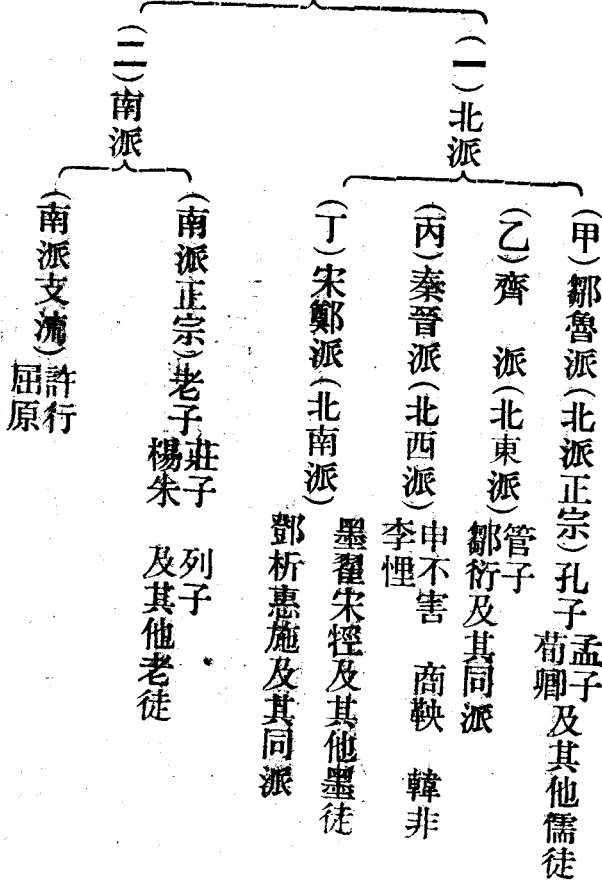 （一）北派
（甲）鄒魯派（北派正宗）孔子 孟子
荀卿及其他儒徒
（乙）齊 派（北東派）管子
鄒衍及其同派
（丙）秦晉派（北西派）申不害 商鞅 韓非
李悝
（丁）宋鄭派（北南派）墨翟宋牼及其他墨徒
鄧析惠施及其同派
（二）南派
（南派正宗）老子 莊子 列子
楊朱 及其他老徒
（南派支流）許行
屈原